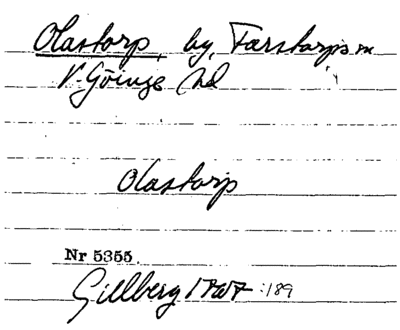 Olastorp, by, Färstorps sn
V. Göinge hd
Olastorp
Nr 5355.
Gillberg 1767 :189